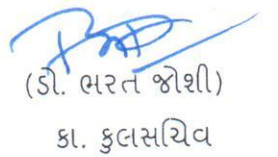 (ડૉ. ભરત જોશી)
કા. કુલસચિવ